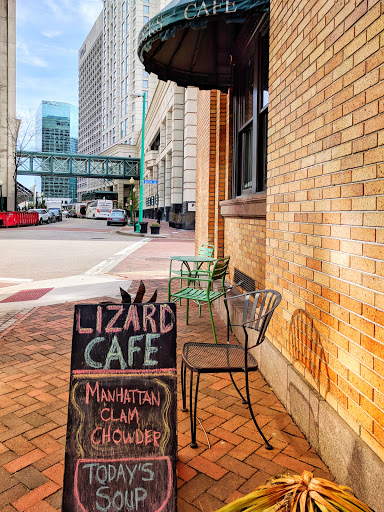 CAFE
LIZARD
CAFE
MANHATTAN
CLAM
CHOWDER
TODAY'S
SOUP